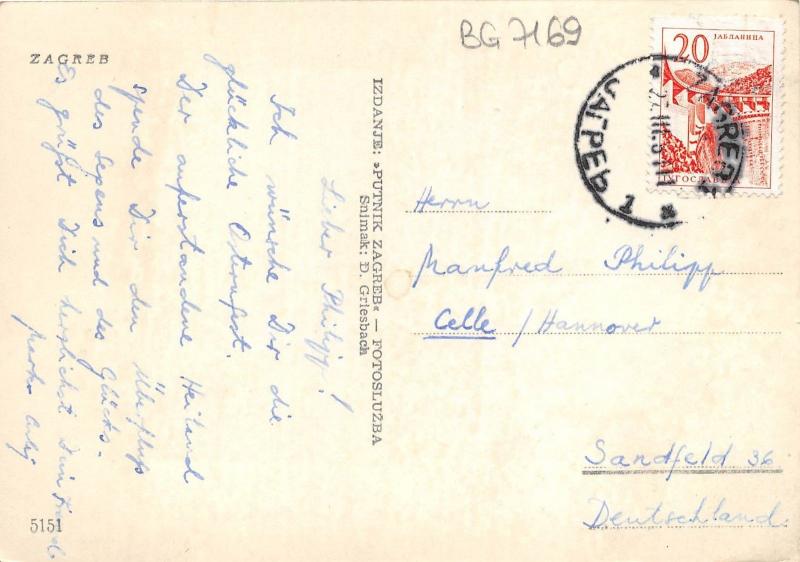 BG 7169
ZAGREB
20
ЈАБЛАНИЦА
ZAGREB
ЗАГРЕБ
1
Lieber Philipp!
Ich wünsche Dir die
glückliche Osternfest.
Der auferstandene Heiland
spende Dir den Überfluss
des Segens und des Glücks.
Es grüsst Dich herzlichst Dein Freund
IZDANJE: »PUTNIK ZAGREB« — FOTOSLUŽBA
Snimak: Đ. Griesbach
Herrn
Manfred Philipp
Celle / Hannover
Sandfeld 36
Deutschland
5151